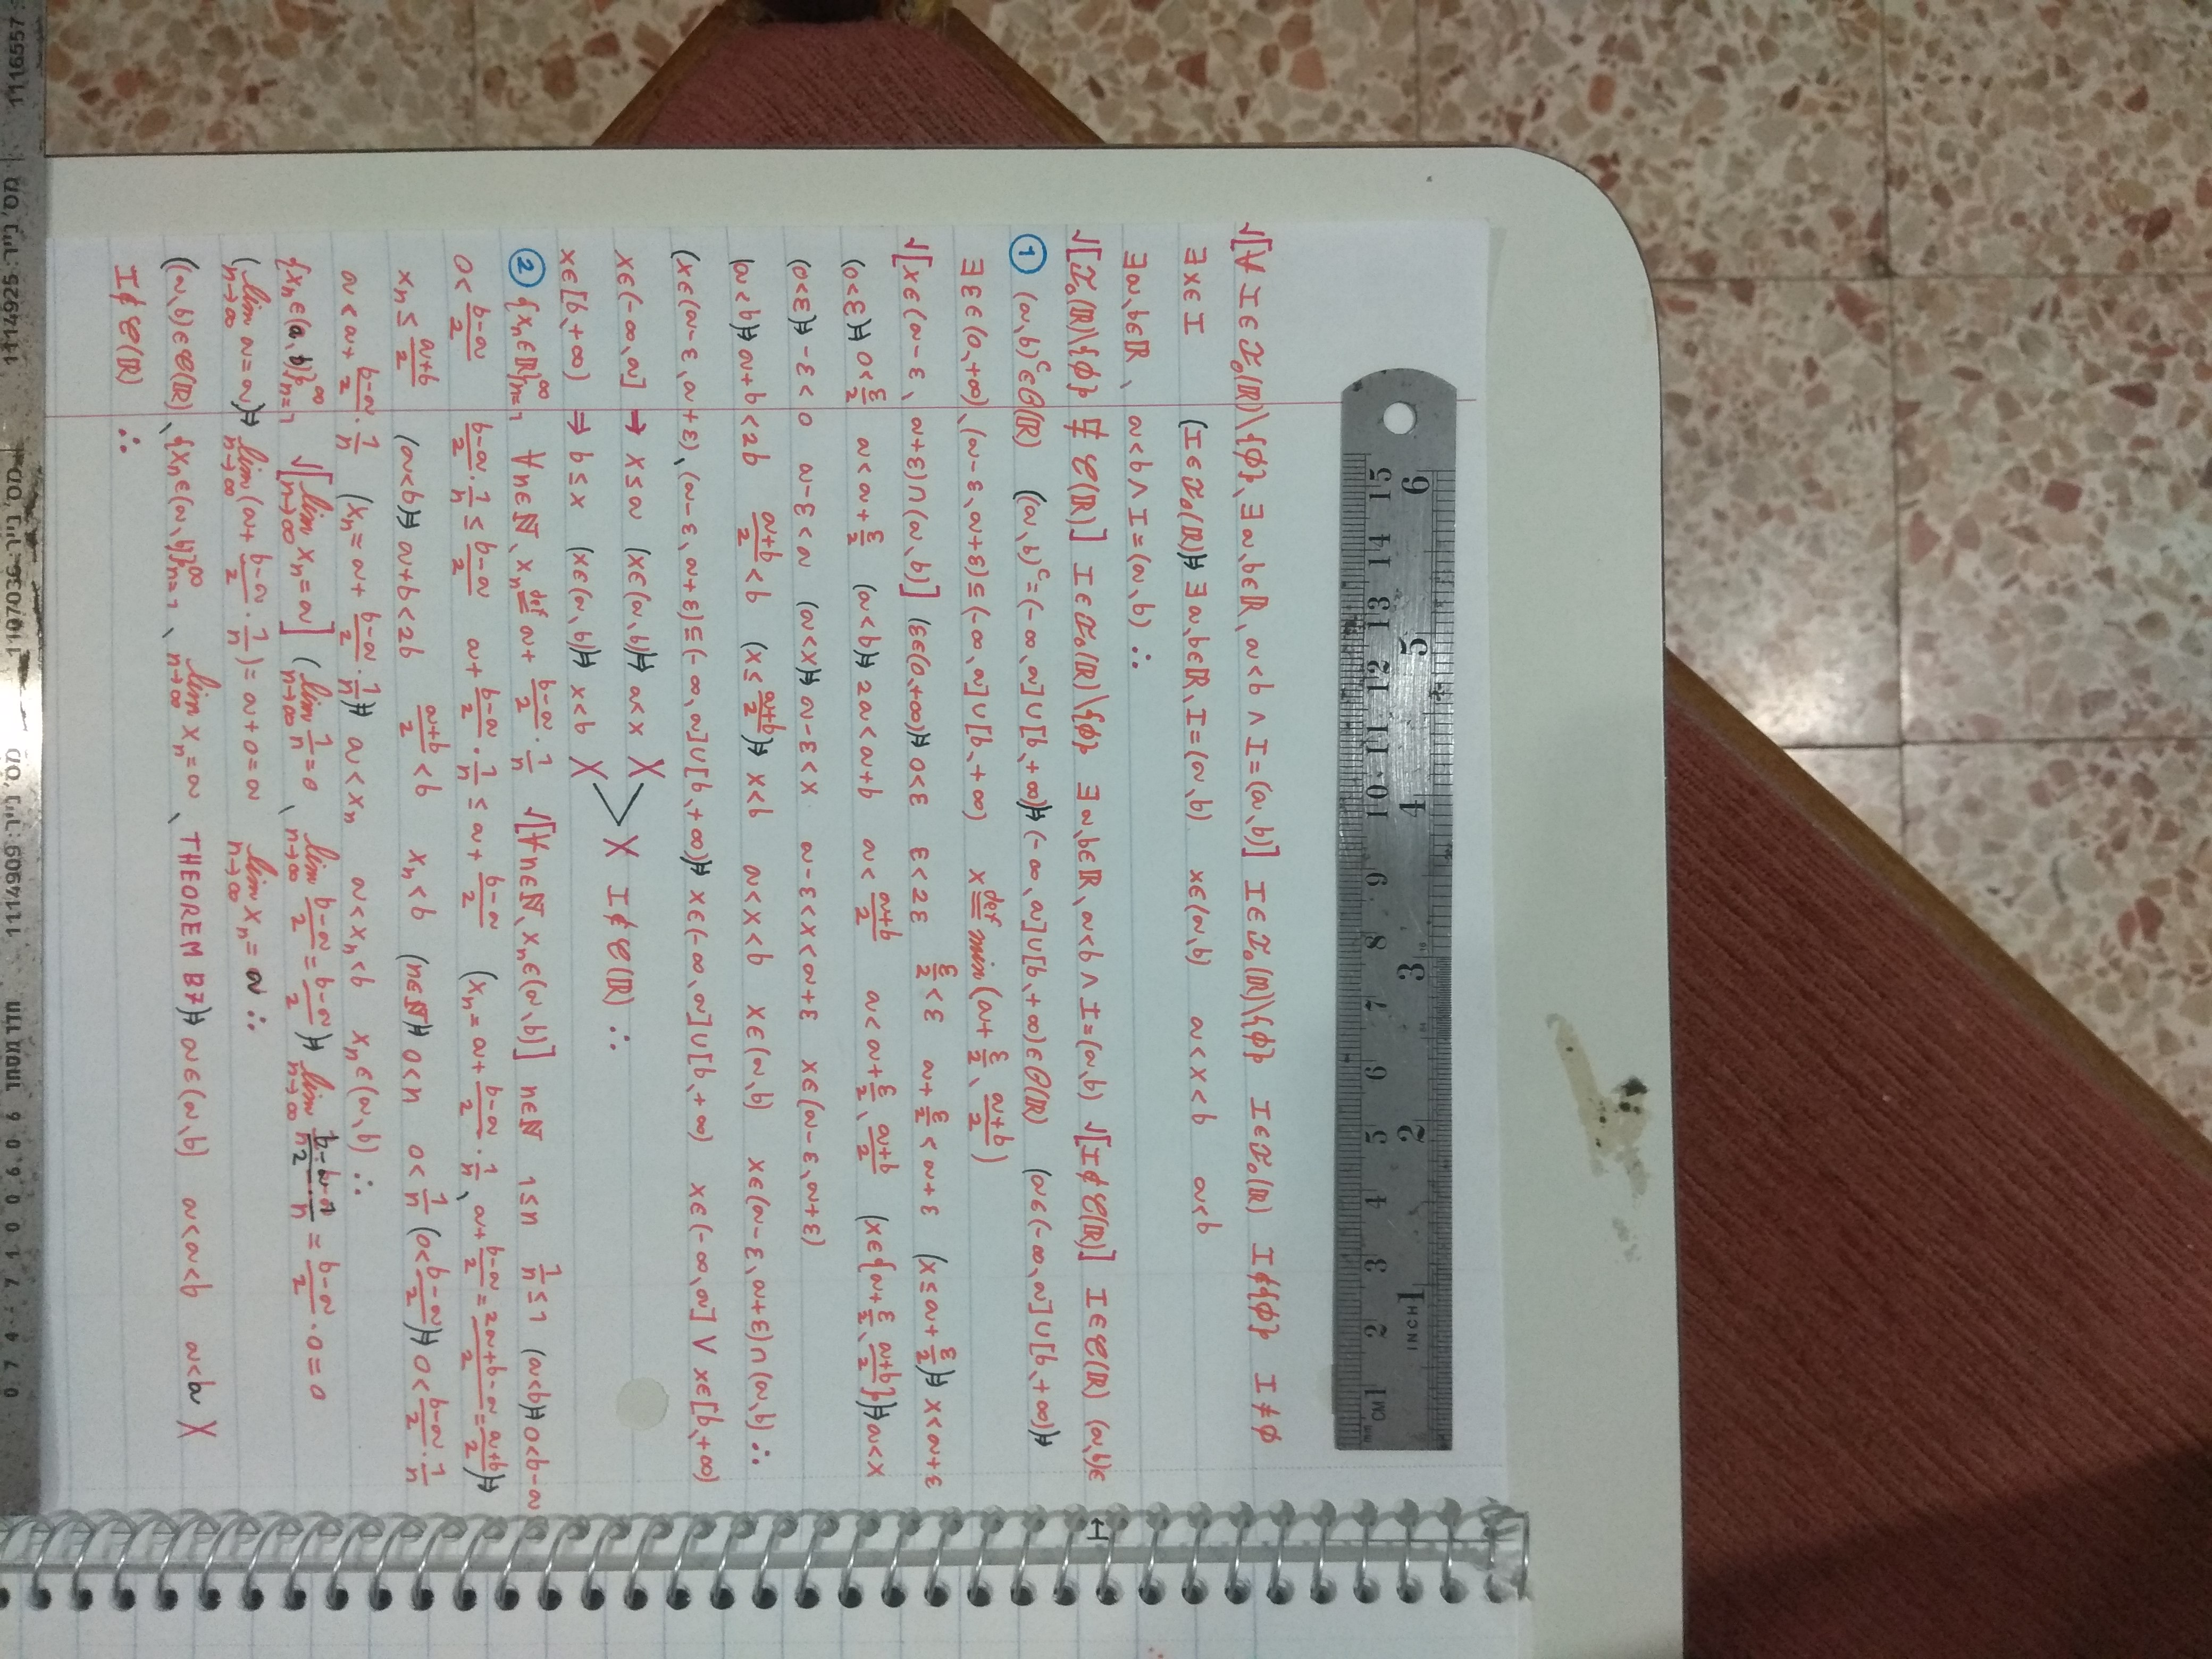 √[∀ I ∈ ℐ₀(ℝ)\{∅}, ∃ a,b∈ℝ, a<b ∧ I=(a,b)] I∈ℐ₀(ℝ)\{∅} I∈ℐ₀(ℝ) I∉{∅} I≠∅
∃ x∈I (I∈ℐ₀(ℝ))⇒ ∃ a,b∈ℝ, I=(a,b) x∈(a,b) a<x<b a<b
∃ a,b∈ℝ, a<b ∧ I=(a,b) ∴
√[ℐ₀(ℝ)\{∅} ⋢ 𝒞(ℝ)] I∈ℐ₀(ℝ)\{∅} ∃ a,b∈ℝ, a<b ∧ I=(a,b) √[I∉𝒞(ℝ)] I∈𝒞(ℝ) (a,b)∈
① (a,b)ᶜ∈𝒪(ℝ) ((a,b)ᶜ=(-∞,a]∪[b,+∞))⇒ (-∞,a]∪[b,+∞)∈𝒪(ℝ) (a∈(-∞,a]∪[b,+∞))⇒
∃ ε∈(0,+∞), (a-ε,a+ε)⊆(-∞,a]∪[b,+∞) x ≝ min(a+ε/2, (a+b)/2)
√[x∈(a-ε, a+ε)∩(a,b)] (ε∈(0,+∞))⇒ 0<ε ε<2ε ε/2<ε a+ε/2<a+ε (x≤a+ε/2)⇒ x<a+ε
(0<ε)⇒ 0<ε/2 a<a+ε/2 (a<b)⇒ 2a<a+b a<(a+b)/2 a<a+ε/2, (a+b)/2 (x∈{a+ε/2, (a+b)/2})⇒ a<x
(0<ε)⇒ -ε<0 a-ε<a (a<x)⇒ a-ε<x a-ε<x<a+ε x∈(a-ε,a+ε)
(a<b)⇒ a+b<2b (a+b)/2<b (x≤(a+b)/2)⇒ x<b a<x<b x∈(a,b) x∈(a-ε,a+ε)∩(a,b) ∴
(x∈(a-ε,a+ε), (a-ε,a+ε)⊆(-∞,a]∪[b,+∞))⇒ x∈(-∞,a]∪[b,+∞) x∈(-∞,a] ∨ x∈[b,+∞)
x∈(-∞,a] ⇒ x≤a (x∈(a,b))⇒ a<x X
x∈[b,+∞) ⇒ b≤x (x∈(a,b))⇒ x<b X > X I∉𝒞(ℝ) ∴
② {xₙ∈ℝ}ₙ₌₁^∞ ∀n∈ℕ, xₙ ≝ a+(b-a)/2·1/n √[∀n∈ℕ, xₙ∈(a,b)] n∈ℕ 1≤n 1/n≤1 (a<b)⇒ 0<b-a
0<(b-a)/2 (b-a)/2·1/n≤(b-a)/2 a+(b-a)/2·1/n≤a+(b-a)/2 (xₙ=a+(b-a)/2·1/n, a+(b-a)/2=(2a+b-a)/2=(a+b)/2)⇒
xₙ≤(a+b)/2 (a<b)⇒ a+b<2b (a+b)/2<b xₙ<b (n∈ℕ)⇒ 0<n 0<1/n (0<(b-a)/2)⇒ 0<(b-a)/2·1/n
a<a+(b-a)/2·1/n (xₙ=a+(b-a)/2·1/n)⇒ a<xₙ a<xₙ<b xₙ∈(a,b) ∴
{xₙ∈(a,b)}ₙ₌₁^∞ √[lim n→∞ xₙ=a] (lim n→∞ 1/n=0, lim n→∞ (b-a)/2=(b-a)/2)⇒ lim n→∞ (b-a)/2·1/n=(b-a)/2·0=0
(lim n→∞ a=a)⇒ lim n→∞ (a+(b-a)/2·1/n)=a+0=a lim n→∞ xₙ=a ∴
((a,b)∈𝒞(ℝ), {xₙ∈(a,b)}ₙ₌₁^∞, lim n→∞ xₙ=a, THEOREM B7)⇒ a∈(a,b) a<a<b a<a X
I∉𝒞(ℝ) ∴